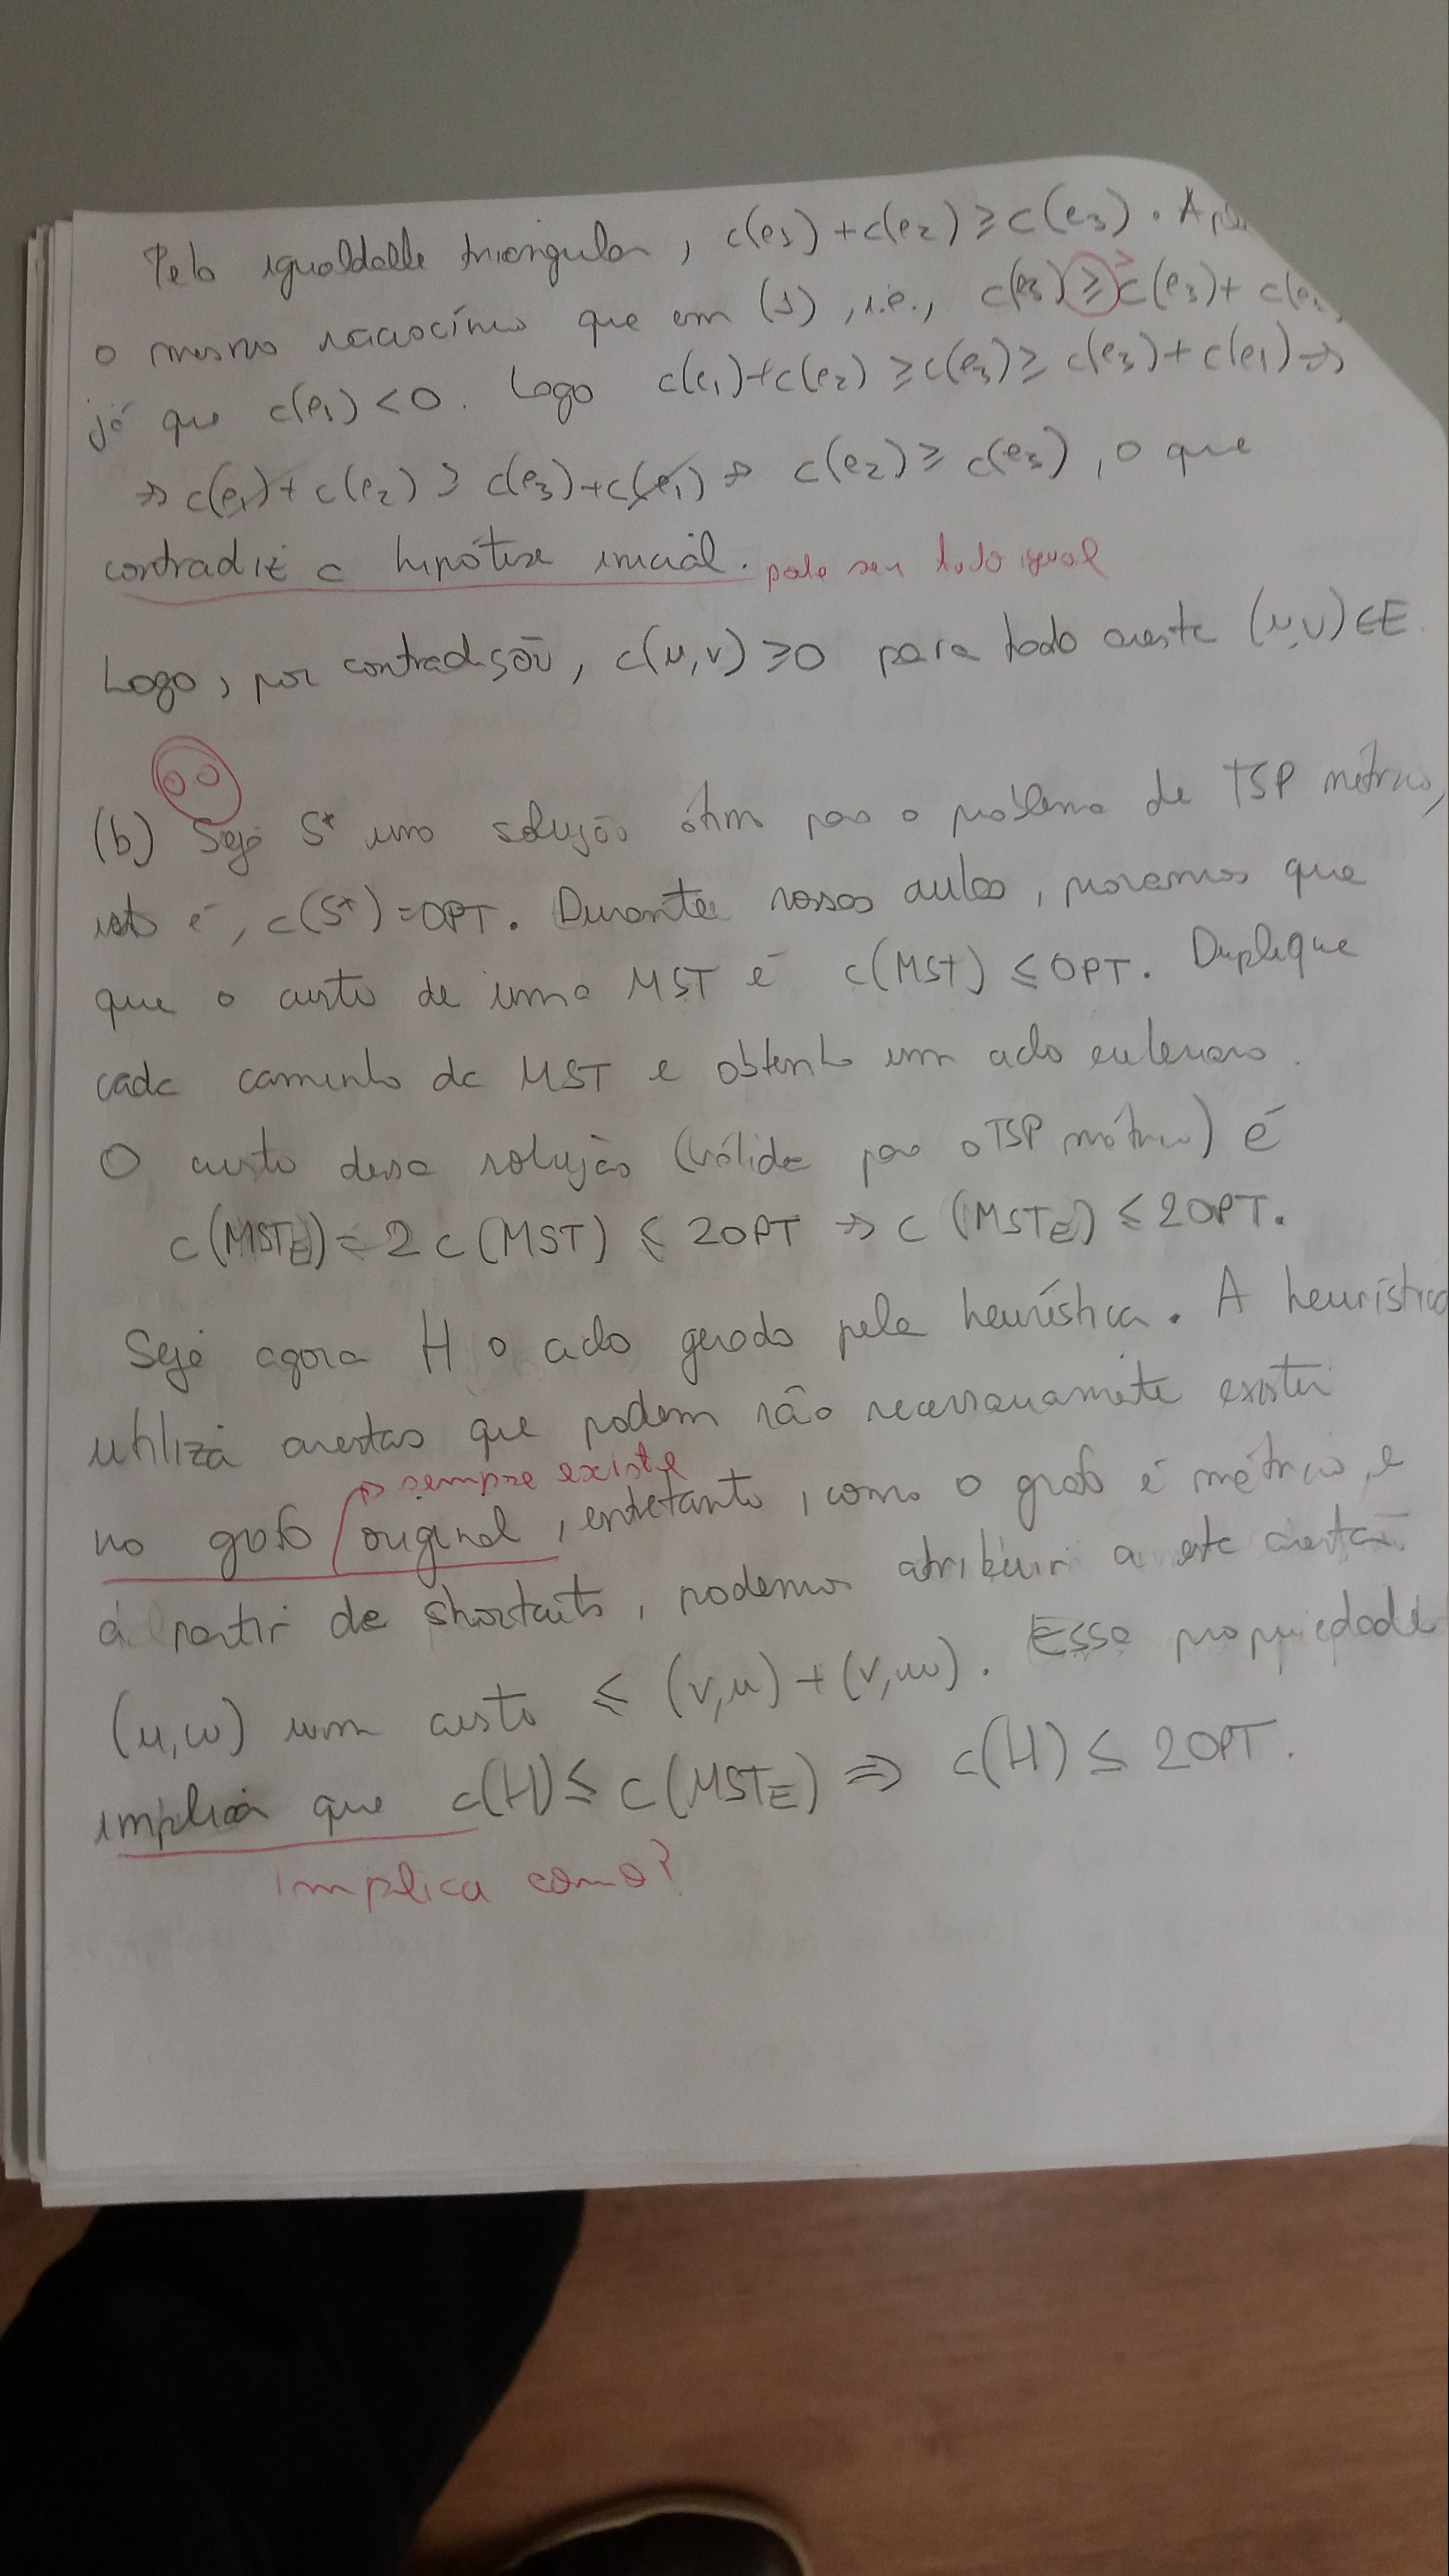 Pela igualdade triangular, c(e1) + c(e2) ≥ c(e3). Apl
o mesmo raciocínio que em (1), i.e., c(e3) ≥ c(e3) + c(e1
>
já que c(e1) < 0. Logo c(e1) + c(e2) ≥ c(e3) ≥ c(e3) + c(e1) ⇒
⇒ c(e1) + c(e2) ≥ c(e3) + c(e1) ⇒ c(e2) ≥ c(e3), o que
contradiz a hipótese inicial. pode ser tudo igual
Logo, por contradição, c(u,v) ≥ 0 para todo aresta (u,v) ∈ E.
(b) Seja S* uma solução ótima para o problema de TSP métrico,
isto é, c(S*) = OPT. Durante nossas aulas, provamos que
que o custo de uma MST é c(MST) ≤ OPT. Duplique
cada caminho da MST e obtenha um ciclo euleriano.
O custo dessa solução (válida para o TSP métrico) é
c(MST_E) = 2 c(MST) ≤ 2OPT ⇒ c(MST_E) ≤ 2OPT.
Seja agora H o ciclo gerado pela heurística. A heurística
utiliza arestas que podem não necessariamente existir
sempre existe
no grafo original, entretanto, como o grafo é métrico, e
a partir de shortcuts, podemos atribuir a esta aresta
(u,w) um custo ≤ (v,u) + (v,w). Essa propriedade
implica que c(H) ≤ c(MST_E) ⇒ c(H) ≤ 2OPT.
implica como?